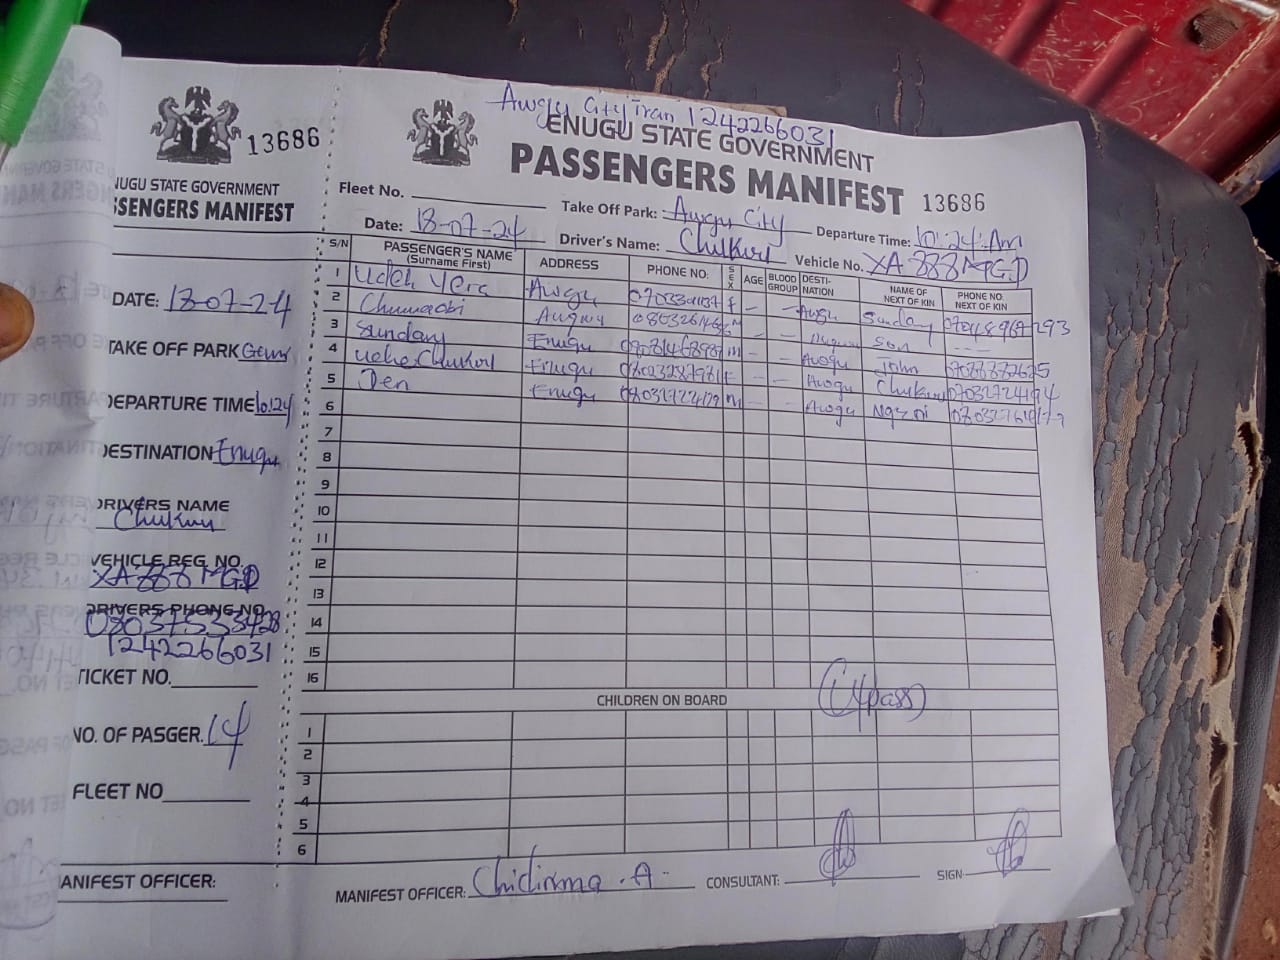 13686
ENUGU STATE GOVERNMENT
PASSENGERS MANIFEST
DATE: 18-07-24
TAKE OFF PARK
DEPARTURE TIME 10:24
DESTINATION Enugu
DRIVERS NAME
Chukwu
VEHICLE REG. NO.
XA 888 MGD
DRIVERS PHONE NO.
08037533428
1242266031
TICKET NO.
NO. OF PASGER. 14
FLEET NO
MANIFEST OFFICER:
Awgu City Tran 1242266031
ENUGU STATE GOVERNMENT
PASSENGERS MANIFEST 13686
Fleet No. Take Off Park: Awgu City Departure Time: 10:24:Am
Date: 18-07-24 Driver's Name: Chukwu Vehicle No. XA 888 MGD
S/N PASSENGER'S NAME (Surname First) ADDRESS PHONE NO: SEX AGE BLOOD GROUP DESTINATION NAME OF NEXT OF KIN PHONE NO. NEXT OF KIN
1 Udeh Vera Awgu f - - Awgu Sunday
2 Awgu m - - Son ---
3 Sunday Enugu m - - Awgu John
4 Uche Chukwu Enugu f - - Awgu Chukwu
5 Jen Enugu m - - Awgu Ngozi
6
7
8
9
10
11
12
13
14
15
16
CHILDREN ON BOARD (14pass)
1
2
3
4
5
6
MANIFEST OFFICER: Chidinma .A. CONSULTANT: SIGN